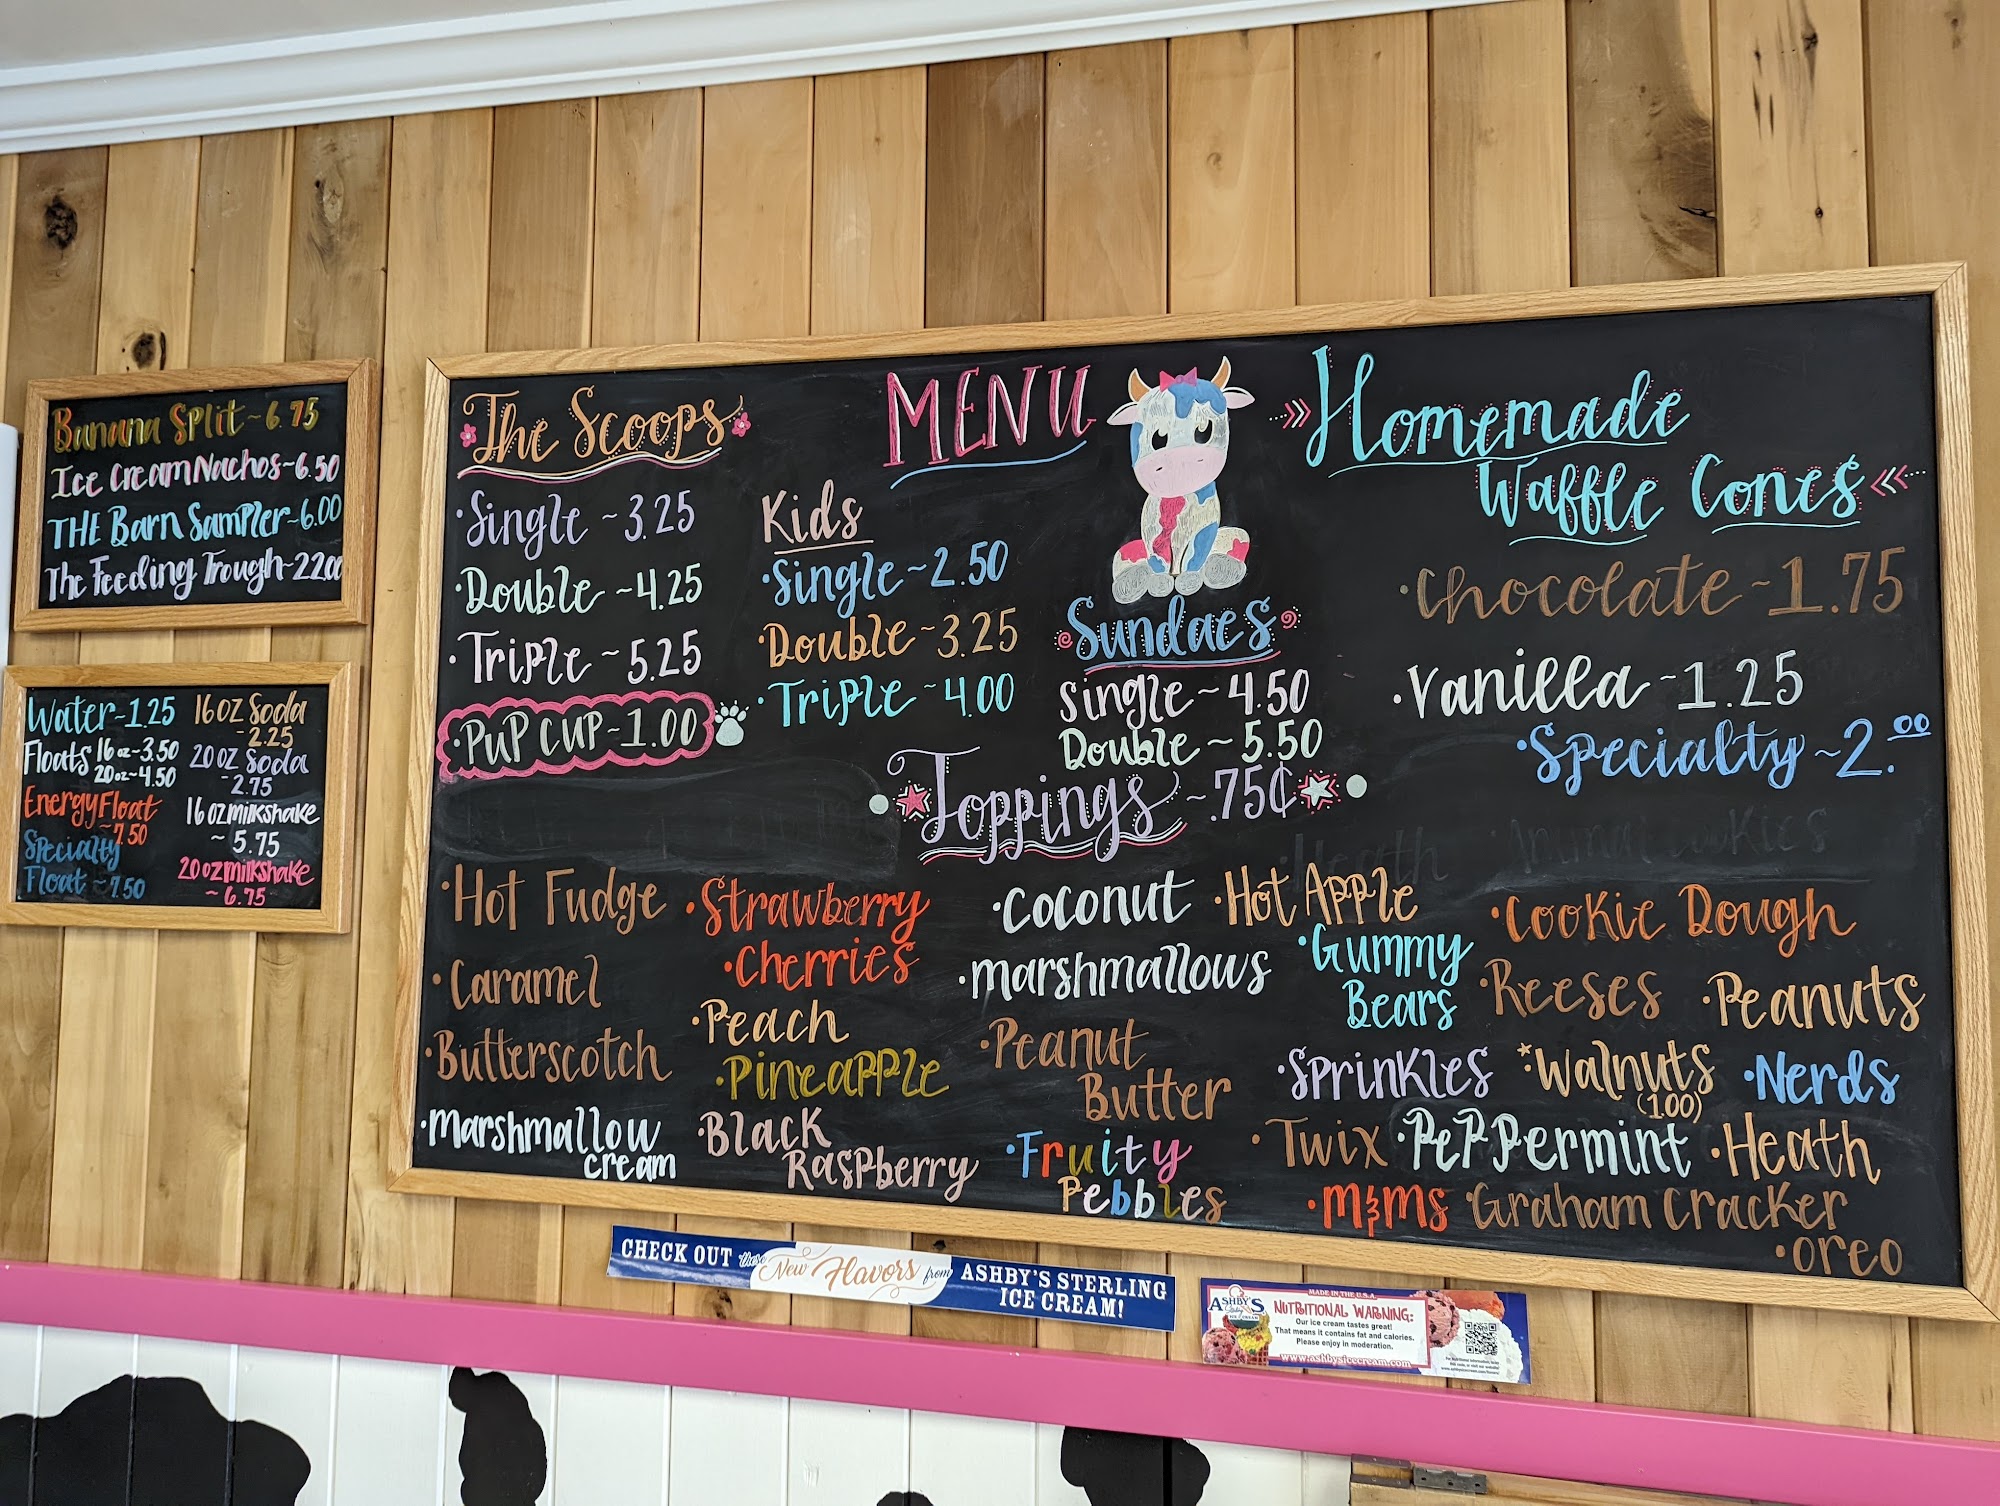 Banana Split ~ 6.75
Ice Cream Nachos ~ 6.50
THE Barn Sampler ~ 6.00
The Feeding Trough ~ 22.00
Water ~ 1.25
Floats 16 oz ~ 3.50
20 oz ~ 4.50
Energy Float
~ 7.50
Specialty
Float ~ 7.50
16 oz Soda
- 2.25
20 oz Soda
- 2.75
16 oz milkshake
~ 5.75
20 oz milkshake
~ 6.75
MENU
The Scoops
·Single ~ 3.25
·Double ~ 4.25
·Triple ~ 5.25
·PUP CUP ~ 1.00
Kids
·Single ~ 2.50
·Double ~ 3.25
·Triple ~ 4.00
Sundaes
Single ~ 4.50
Double ~ 5.50
Homemade
Waffle Cones
·Chocolate ~ 1.75
·Vanilla ~ 1.25
·Specialty ~ 2.00
Toppings ~ .75¢
·Hot Fudge
·Caramel
·Butterscotch
·Marshmallow
cream
·Strawberry
·Cherries
·Peach
·Pineapple
·Black
Raspberry
·Coconut
·Marshmallows
·Peanut
Butter
·Fruity
Pebbles
·Hot Apple
·Gummy
Bears
·Sprinkles
·Twix
·M&Ms
·Cookie Dough
·Reeses
·Peanuts
*Walnuts
(1.00)
·Nerds
·Peppermint
·Heath
·Graham Cracker
·Oreo
CHECK OUT these New Flavors from ASHBY'S STERLING
ICE CREAM!
MADE IN THE U.S.A.
ASHBY'S
Sterling
ICE CREAM
NUTRITIONAL WARNING:
Our ice cream tastes great!
That means it contains fat and calories.
Please enjoy in moderation.
www.ashbysicecream.com